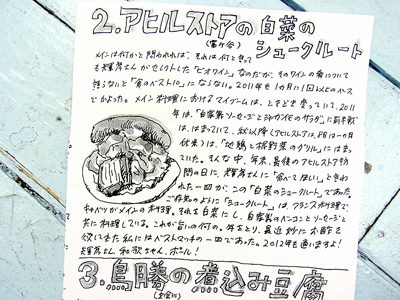 2.アヒルストアの白菜の
(富ヶ谷) シュークルート
メインは何かと問われれば、それは何ときっても
齊藤さんがセレクトした「ビオワイン」なのだが、そのワインの肴について
語らないと「食のベスト10」にならない。2011年も1月に1回以上のペース
でかよった。メイン料理におけるマイブームは、ときどき変っていて、2011
年は、「自家製ソーセージとジャガイモのサラダ」に前半戦
は、はまっていて、秋以降(アヒルストアは、8月は一ヵ月
休業)は、「地鶏と根野菜のグリル」にはま
っていた。そんな中、年末、最後のアヒルストア訪
問の日に、齊藤さんに「食べてほしい」と言わ
れた一皿が、この「白菜のシュークルート」であった。
ご存知のように「シュークルート」は、フランス料理で
キャベツがメインの料理。それを白菜にし、自家製のベーコンとソーセージと
共に料理している。これが旨いの何の。年をとり、最近妙にお酢を
欲してきた私にはベストマッチの一皿であった。2012年も通いますよ!
齊藤さん、和歌ちゃん、ボニル!
3.鳥勝の煮込み豆腐